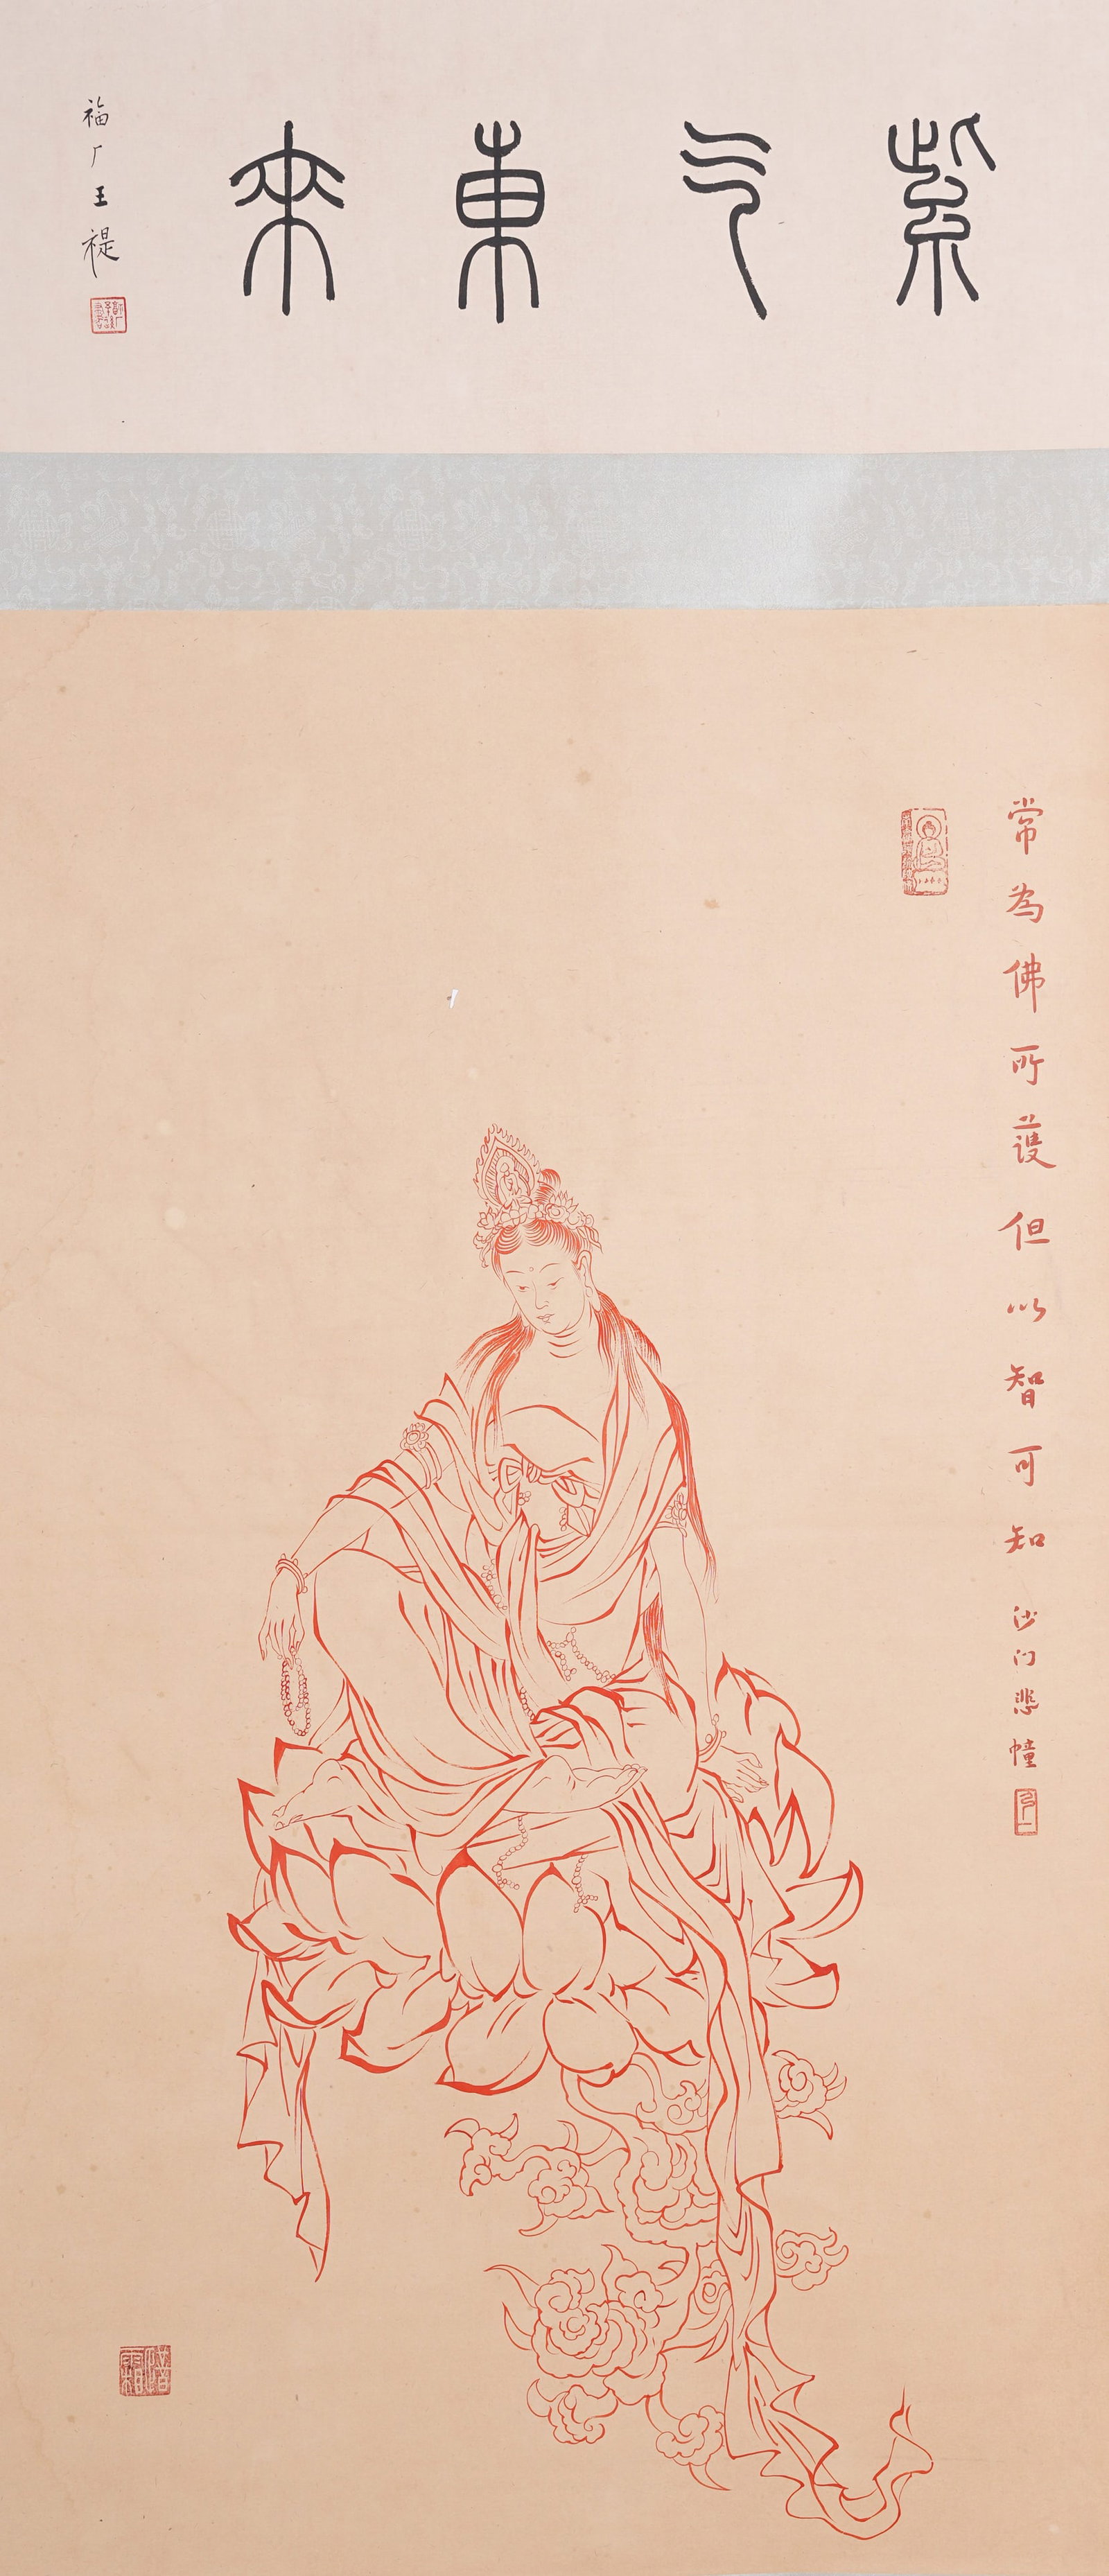 紫气東來
福厂王禔
常為佛所護但以智可知
沙门悲幢
弘一